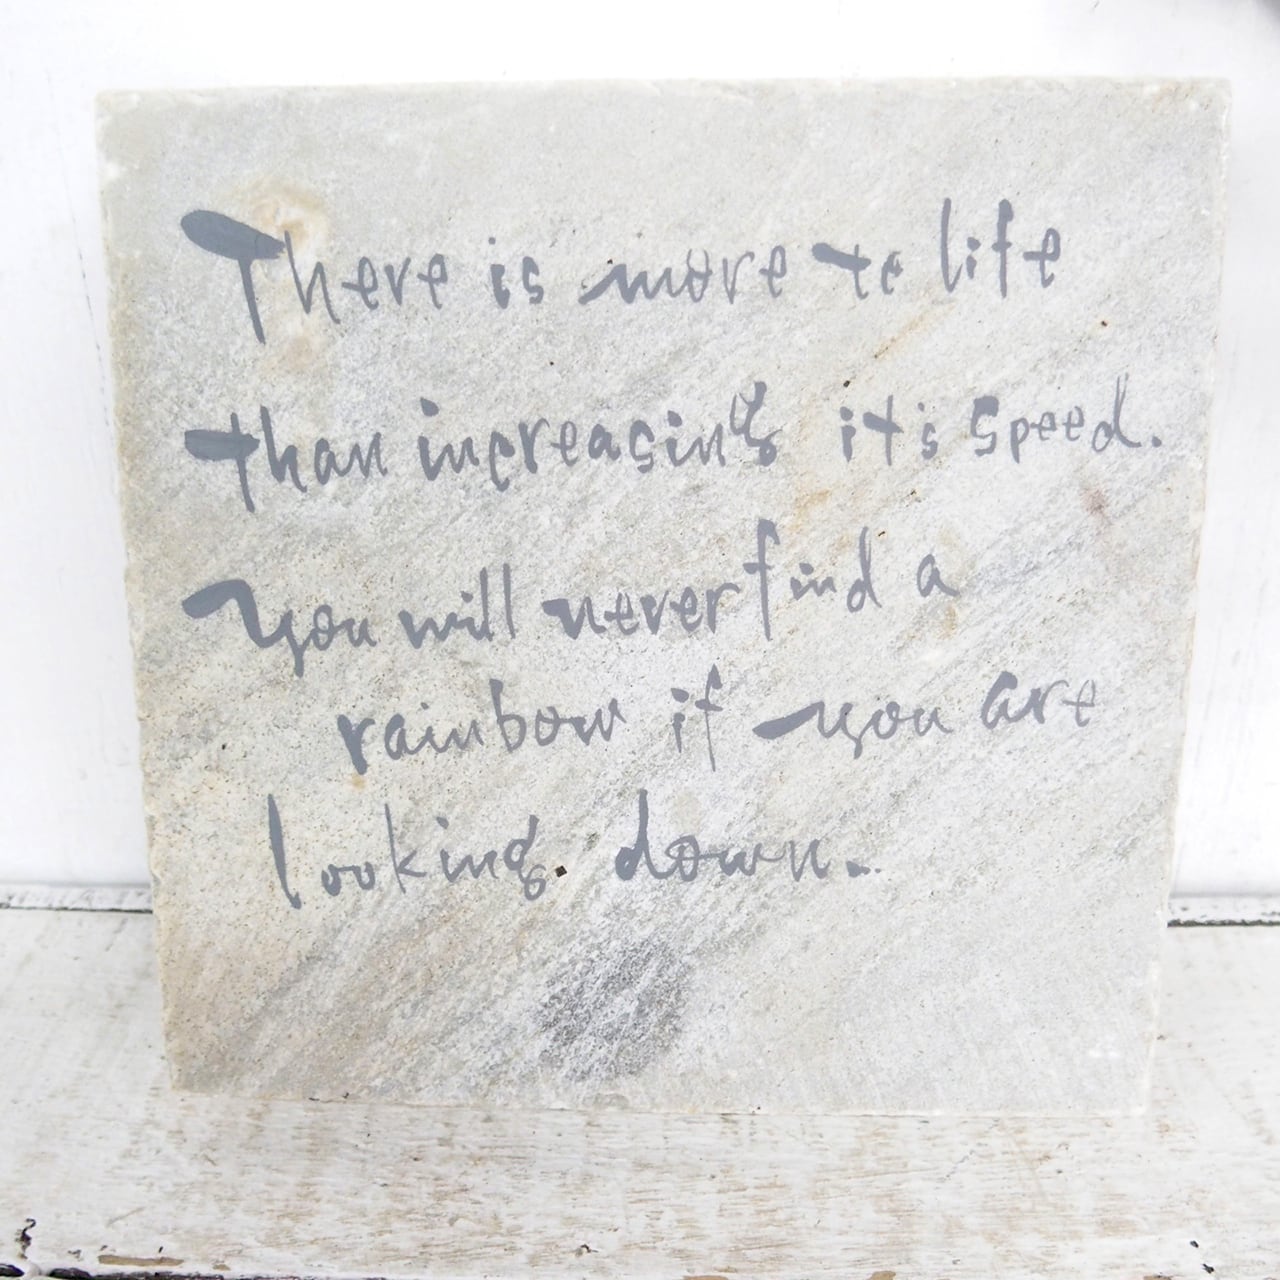 There is more to life
than increasing it's speed.
You will never find a
rainbow if you are
looking down.